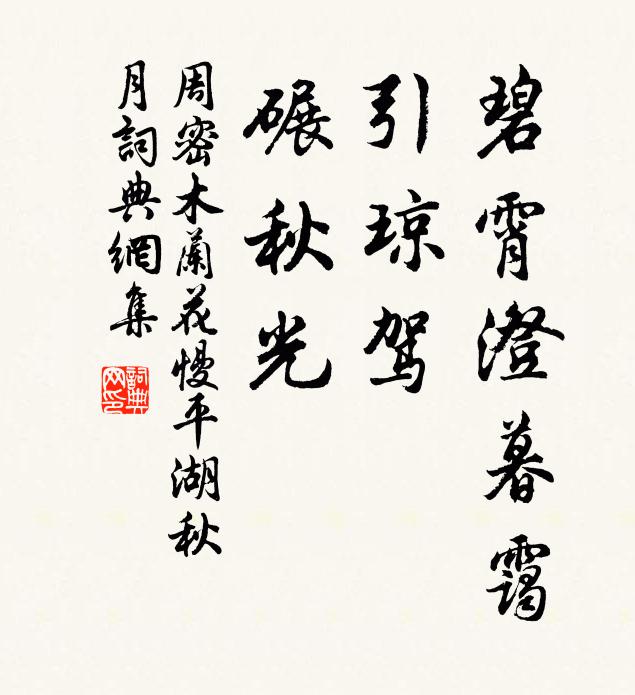 碧霄澄暮靄
引琼駕
碾秋光
周密木蘭花慢平湖秋
月詞典網集
詞典
网印